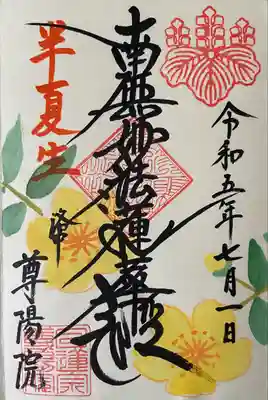 令和五年七月一日
南無妙法蓮華経
半夏生
尊陽院